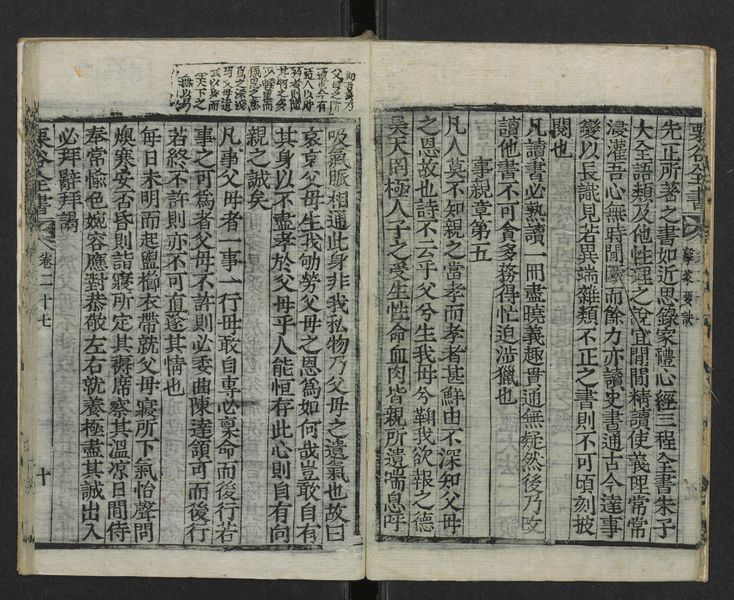 栗谷全書 擊蒙要訣
先正所著之書如近思錄家禮心經二程全書朱子
大全語類及他性理之說宜間間精讀使義理常常
浸灌吾心無時間斷而餘力亦讀史書通古今達事
變以長識見若異端雜類不正之書則不可頃刻披
閱也
凡讀書必熟讀一冊盡曉義趣貫通無疑然後乃改
讀他書不可貪多務得忙迫涉獵也
事親章第五
凡人莫不知親之當孝而孝者甚鮮由不深知父母
之恩故也詩不云乎父兮生我母兮鞠我欲報之德
昊天罔極人子之受生性命血肉皆親所遺喘息呼
父母之所
遺也今有
遺人以財
物者則隨
其物之多
少輕重而
感恩之意
爲之深淺
焉父母遺
我以身而
天下之
無以易
吸氣脈相通此身非我私物乃父母之遺氣也故曰
哀哀父母生我劬勞父母之恩爲如何哉豈敢自有
其身以不盡孝於父母乎人能恒存此心則自有向
親之誠矣
凡事父母者一事一行毋敢自專必稟命而後行若
事之可爲者父母不許則必委曲陳達頷可而後行
若終不許則亦不可直遂其情也
每日未明而起盥櫛衣帶就父母寢所下氣怡聲問
燠寒安否昏則詣寢所定其褥席察其溫凉日間侍
奉常愉色婉容應對恭敬左右就養極盡其誠出入
必拜辭拜謁
栗谷全書 卷二十七 十